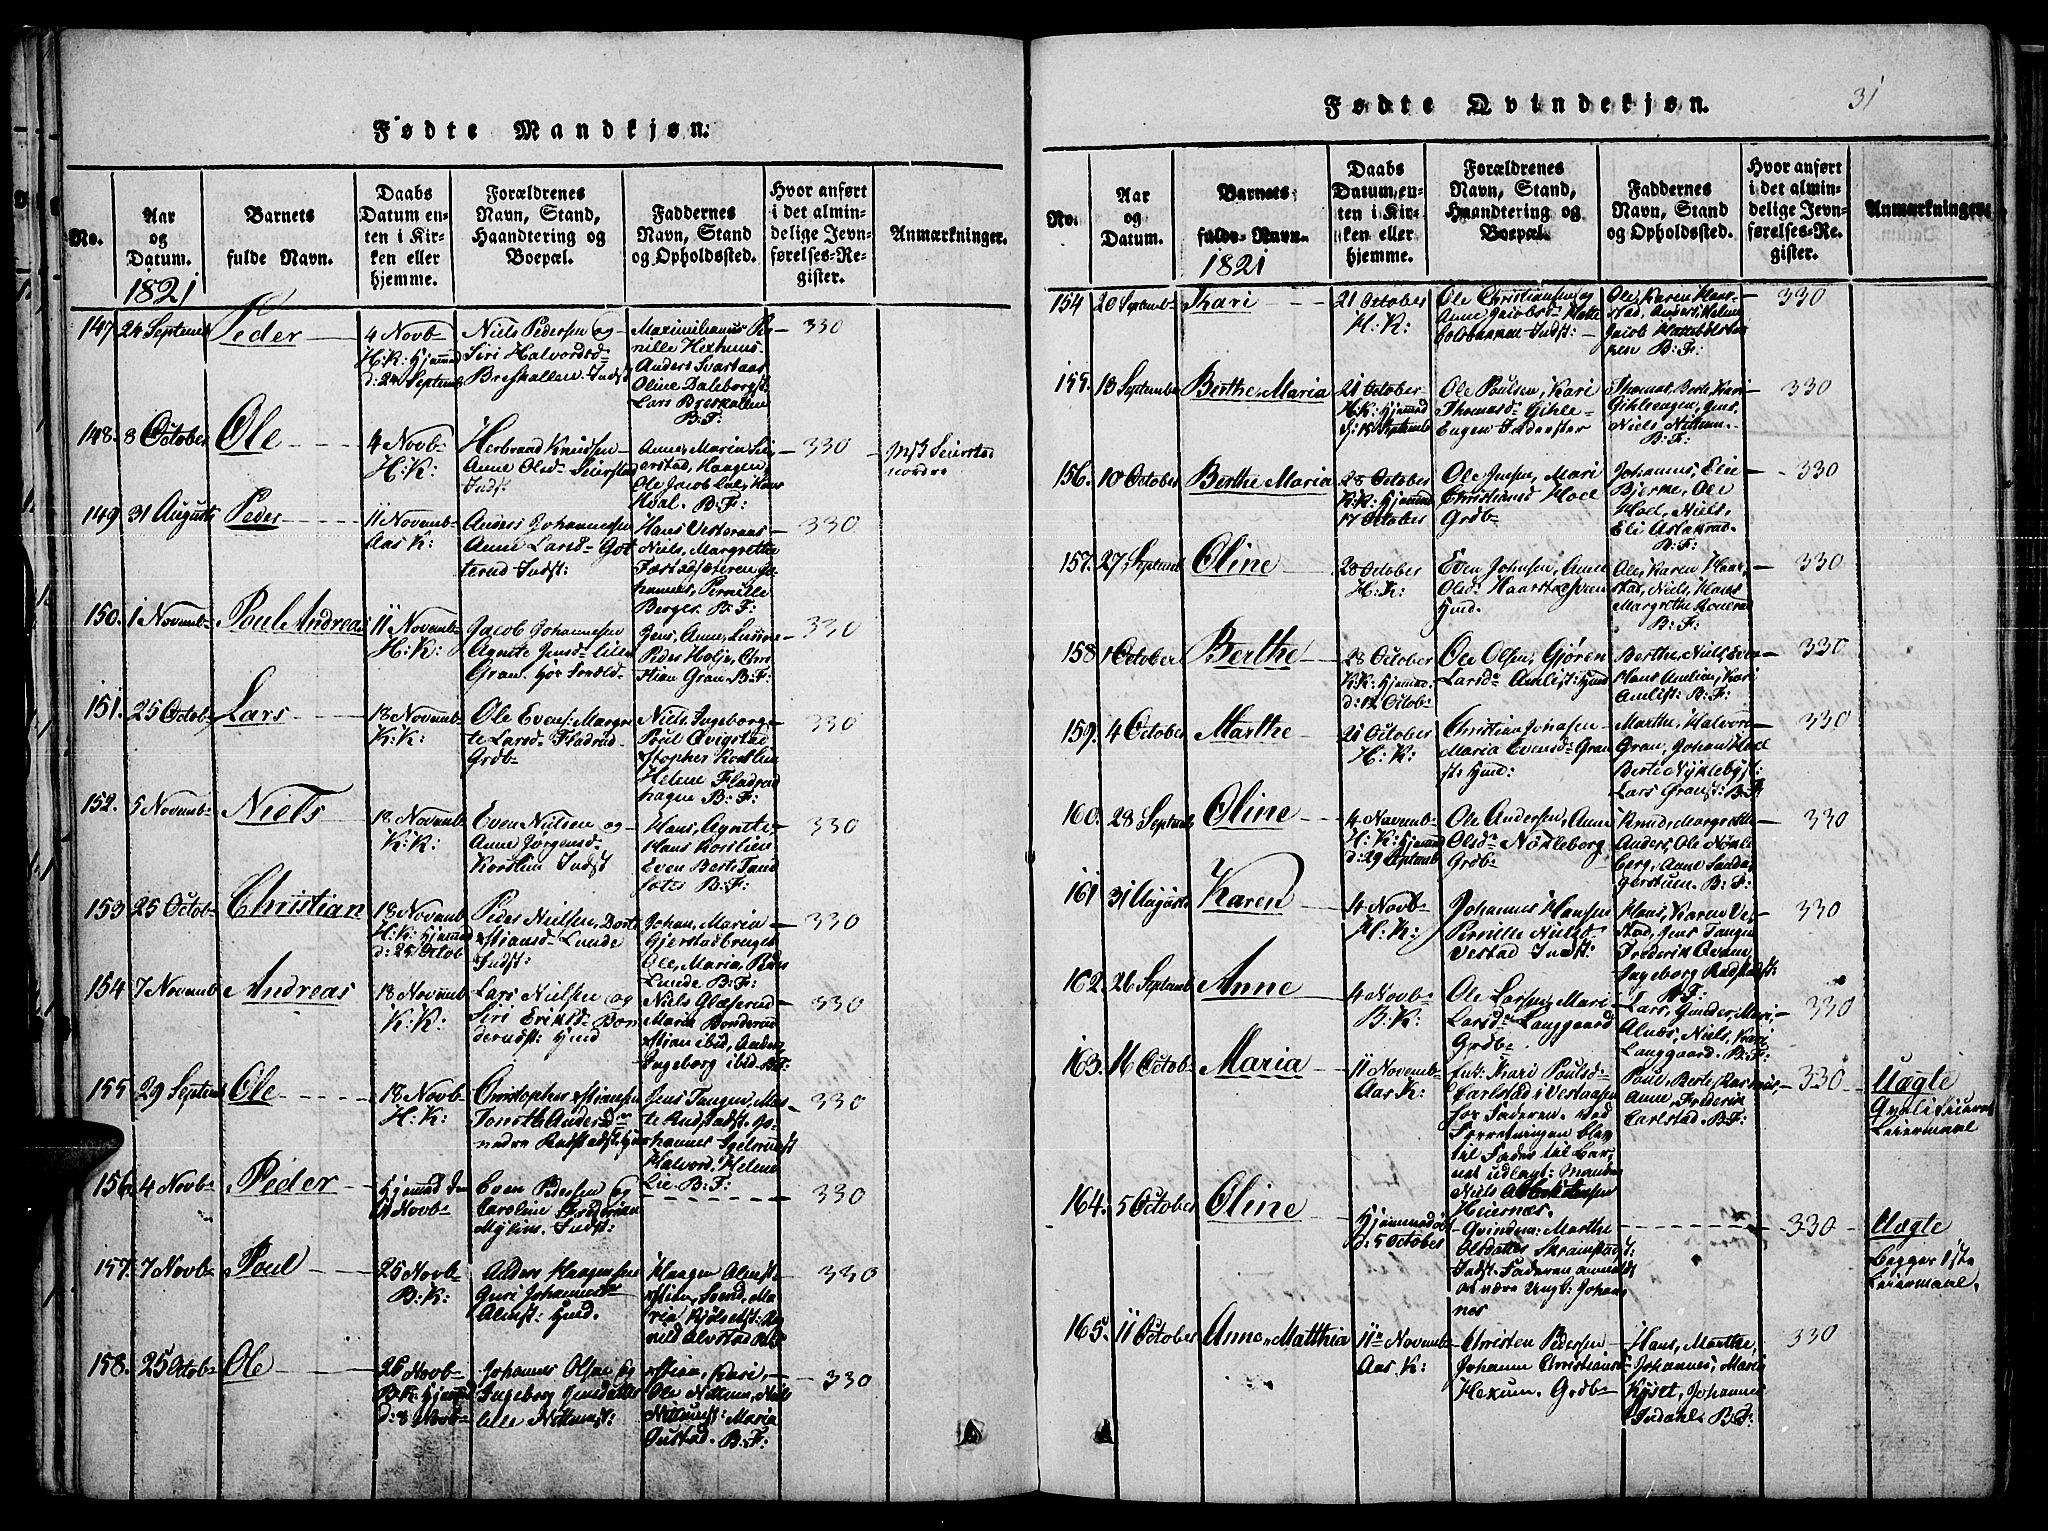 Fødte Mandkjøn.
No.
Aar
og
Datum.
1821
Barnets
fulde Navn.
Daabs
Datum en-
ten i Kir-
ken eller
hjemme.
Forældrenes
Navn, Stand,
Haandtering og
Boepæl.
Faddernes
Navn, Stand
og Opholdssted.
Hvor anført
i det almin-
delige Jevn-
førelses-Re-
gister.
Anmærkninger.
147. 24 Septemb
Peder
4 Novb-
H: K: Hjemmed
d: 24 Septemb
Niels Pedersen og
Siri Halvordsd-
Breskallen Indst
Maximilianus Per-
nille Hexhuus
Anders Svartaas
Oline Daleborgst
Lars Breskallen
B: F:
330
148. 8 October
Ole
4 Novb-
H: K:
Herbrand Knudsen
Anne Olsd- Seierstad
Indst
Anne, Maria Sei-
erstad, Haagen,
Ole Jacob Lie, Hans
Hval. B: F:
330
Seiersta
nordre
149 31 August
Peder
11 Novemb-
Aas K:
Anders Johannesen
Anne Larsd- Got
terud Indst:
Hans Vesteraas
Niels, Margrethe
Fæstadsæteren Jo-
hannes, Pernille
Berger. B: F:
330
150. 1 Novemb-
Poul Andreas
11 Novemb-
H: K:
Jacob Johannesen
Agnete Jensd- Lille
Gran.
Jens, Anne,
Peder Holje, Chri-
stian Gran B: F:
330
151. 25 Octob-
Lars
18 Novemb-
K: K:
Ole Evens: Margre
te Larsd- Fladrud-
Grdb-
Niels, Ingeborg
Poul Qvigstad
Stopher Korslien
Helene Fladrud
hagen B: F:
330
152. 5 Novemb-
Niels
18 Novemb
K: K:
Even Nielsen og
Anne Jørgensd-
Korslien Indst
Hans, Agnete,
Hans Korslien
Even Berte Sand
B: F:
330
153 25 Octob-
Christian
18 Novemb-
H: K: Hjemmed
d: 25 Octob
Peder Nielsen, Dorte
Stiansd- Lunde
Indst:
Johan, Maria
Gjerstadbruget
Ole, Maria, Peder
Lunde B: F:
330
154 7 Novemb
Andreas
18 Novemb-
K: K:
Lars Nielsen og
Siri Eriksd- Bon
derudst: Huud
Niels Glæserud
Maria Bonderud
Stian ibid, Anders
Ingeborg ibid. B: F:
330
155 29 Septemb
Ole
18 Novb-
H: K:
Christopher Stiansen
Torsth Andersd-
nedre Rudstadst: Huu
Jens Tangen, Mar-
te Rudstadst. Jo-
hannes
Halvord. Helene
Lie. B: F:
330
156. 4 Novb-
Peder
Hjemmed den
11 Novb-
Even Pedersen og
Caroline
Indst:
330
157. 7 Novb-
Poul
25 Novb-
B: K:
Anders Haagensen
Guri Johannesd-
Almst: Huud.
Haagen Almst-
Stian, Svend, Ma-
ria
330
158. 25 Octob-
Ole
25 Novb-
B: K: Hjemmed
d: 8 Novb-
Johannes Olsen og
Ingeborg Jensdatter
Lille Nittunst:
Stian, Kari,
Ole Nittun, Niels
Nittunst: Maria
Gustad. B: F:
330
Fødte Qvindekjøn.
31
No.
Aar
og
Datum.
Barnets
fulde Navn.
1821
Daabs
Datum, en-
ten i Kir-
ken eller
hjemme.
Forældrenes
Navn, Stand,
Haandtering og
Boepæl.
Faddernes
Navn, Stand
og Opholdssted.
Hvor anført
i det almin-
delige Jevn-
førelses-Re-
gister.
Anmærkninger.
154 20 Septemb-
Kari
21 October
H: K:
Ole Christiansen og
Anne Jacobsd- Hatte
Indst:
Ole, Karen Haar-
stad, Anders, Helene
Jacob
B: F:
330
155. 13 Septemb
Berthe Maria
21 October
H: K: Hjemmed
d: 15 Septemb
Ole Poulsen, Kari
Thomasd- Gihle-
Engen Inderster
Thomas Berte Kari
Gihleengen, Jens
Niels Nittun
B: F:
330
156. 10 October
Berthe Maria
28 October
K: K: Hjemmed
17 October
Ole Jensen, Mari
Christiansd Hoel
Grdb-
Johannes, Elie
Bjerke, Ole
Hoel, Niels,
Eli Aslakrud
B: F:
330
157. 27 Septemb
Oline
28 October
H: K:
Even Johnsen, Anne
Olsd- Haarstadsveen
Huud.
Ole, Karen Haar-
stad, Niels, Hans
Margrethe
B: F:
330
158 1 October
Berthe
28 October
K: K: Hjemmed
d: 12 Octob:
Ole Olsen, Gjøren
Larsd- Amlist: Huud
Berthe, Niels, Even
Hans Amlien, Kari
Amlist: B: F:
330
159. 4 October
Marthe
21 October
H: K:
Christian Johnsen
Maria Evensd- Gran
st: Huud:
Marthe, Halvor
Gran, Johan Hoel
Berte Nyklebyst:
Lars Granst: B: F:
330
160. 28 Septemb
Oline
4 Novemb-
H: K: Hjemmed
d: 29 Septemb
Ole Andersen, Anne
Olsd- Nøkleborg
Grdb-
Knud, Margrethe
Anders, Ole Nøkle
berg, Anne Sanda
gerstuen. B: F:
330
161 31 August
Karen
4 Novb-
H: K:
Johannes Hansen
Pernille Nielsd-
Vestad Indst:
Hans, Karen Ve-
stad, Jens Tangen
Frederik Qvem
Ingeborg Rudstadst:
B: F:
330
162. 26 Septemb
Anne
4 Novb-
B: K:
Ole Larsen, Mari
Larsd- Langgaard
Grdb-
Lars, Gunder, Mari,
Alnæs, Niels, Kari
Langgaard. B: F:
330
163. 16 Octob-
Maria
11 Novemb-
Aas K:
Kari Poulsd-
Carlstad i Vestaasen
for Faderen. ved
Forretningen blev
til Fader til Bar-
net udlagt: Manden
Niels
Heiernæs.
Poul, Berte, Rasmus,
Anne, Frederik
Carlstad. B: F:
330
Uægte
Leiermaal
164. 5 October
Oline
Hjemmedøbt
d: 5 October
Qvinden: Marthe
Olsdatter Skramstadst:
Indst. Faderen anmeldt
at være Ungk: Johan
nes
330
Uægte
Begges 1ste
Leiermaal.
165. 11 October
Anne Matthia
11te Novemb-
Aas K:
Christen Pedersen
Johanne Christiansd-
Hexum. Grdb-
Hans, Marthe,
Johannes, Maria
Kyset, Johannes
Indahl. B: F:
330